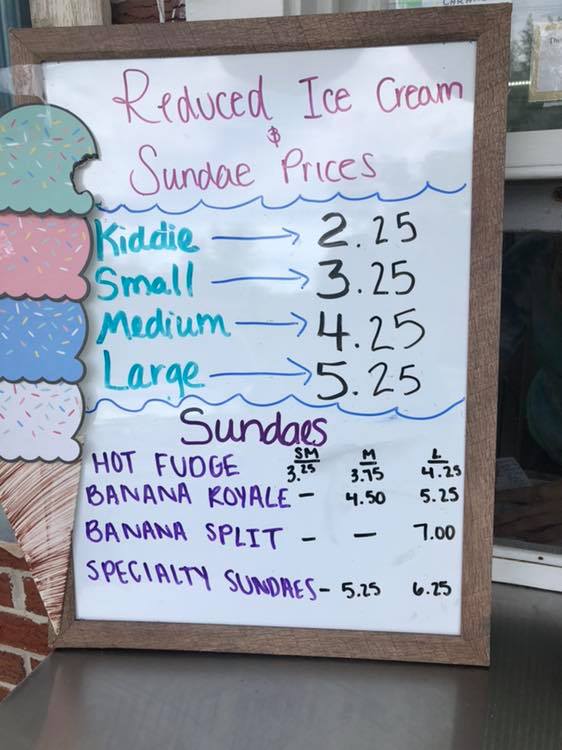 Reduced Ice Cream
$
Sundae Prices
Kiddie → 2.25
Small → 3.25
Medium → 4.25
Large → 5.25
Sundaes
SM M L
HOT FUDGE 3.25 3.75 4.25
BANANA ROYALE - 4.50 5.25
BANANA SPLIT - - 7.00
SPECIALTY SUNDAES - 5.25 6.25